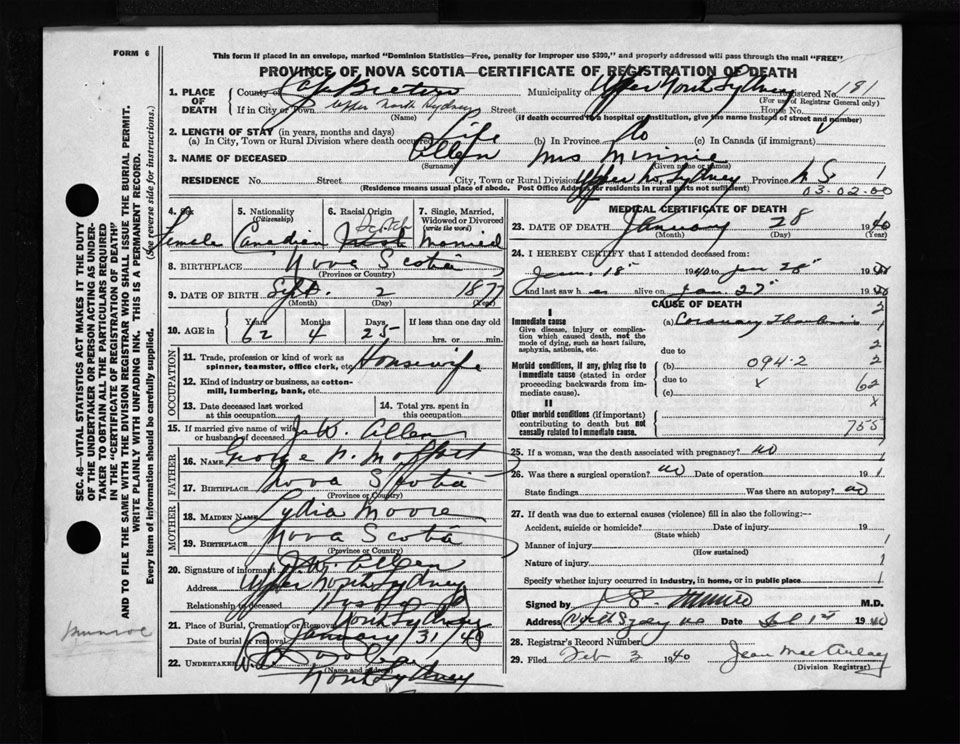 FORM 6
This form if placed in an envelope, marked "Dominion Statistics—Free, penalty for improper use $300," and properly addressed will pass through the mail "FREE"
PROVINCE OF NOVA SCOTIA—CERTIFICATE OF REGISTRATION OF DEATH
1. PLACE OF DEATH
County of Cape Breton Municipality of Upper North Sydney Registered No. 191
(For use of Registrar General only)
If in City or Town Upper North Sydney Street House No.
(Name) (If death occurred in a hospital or institution, give the name instead of street and number)
2. LENGTH OF STAY (in years, months and days)
(a) In City, Town or Rural Division where death occurred Life (b) In Province do (c) In Canada (if immigrant)
3. NAME OF DECEASED Allen Mrs Minnie
(Surname) (Given name or names)
RESIDENCE No. Street City, Town or Rural Division Upper No. Sydney Province N S 1
(Residence means usual place of abode. Post Office Address for residents in rural parts not sufficient) 03-02-00
4. Sex Female
5. Nationality (Citizenship) Canadian
6. Racial Origin Scotch
7. Single, Married, Widowed or Divorced (write the word) Married
8. BIRTHPLACE Nova Scotia
(Province or Country)
9. DATE OF BIRTH Sept. 2 1877
(Month) (Day) (Year)
10. AGE in Years 62 Months 4 Days 25 If less than one day old hrs. or min.
OCCUPATION
11. Trade, profession or kind of work as spinner, teamster, office clerk, etc. Housewife
12. Kind of industry or business, as cotton-mill, lumbering, bank, etc.
13. Date deceased last worked at this occupation
14. Total yrs. spent in this occupation
15. If married give name of wife or husband of deceased J. W. Allen
FATHER
16. NAME George N. Moffatt
17. BIRTHPLACE Nova Scotia
(Province or Country)
MOTHER
18. MAIDEN NAME Lydia Moore
19. BIRTHPLACE Nova Scotia
(Province or Country)
20. Signature of informant J. W. Allen
Address Upper North Sydney
Relationship to deceased Husband
21. Place of Burial, Cremation or Removal North Sydney
Date of burial or removal January /31/40
22. UNDERTAKER
(Name and address)
North Sydney
MEDICAL CERTIFICATE OF DEATH
23. DATE OF DEATH January 28 1940
(Month) (Day) (Year)
24. I HEREBY CERTIFY that I attended deceased from:
Jan. 18" 1940 to Jan 28" 1940
and last saw h alive on Jan. 27" 1940
CAUSE OF DEATH
I
Immediate cause (a) Coronary Thrombosis
Give disease, injury or complication which caused death, not the mode of dying, such as heart failure, asphyxia, asthenia, etc.
due to
Morbid conditions, if any, giving rise to immediate cause (stated in order proceeding backwards from immediate cause).
(b) 094-2
due to x
(c)
2
1
2
2
62
x
755
II
Other morbid conditions (if important) contributing to death but not causally related to immediate cause.
25. If a woman, was the death associated with pregnancy? no 1
26. Was there a surgical operation? no Date of operation 19 1
State findings Was there an autopsy? no
27. If death was due to external causes (violence) fill in also the following:—
Accident, suicide or homicide? Date of injury 19
(State which)
Manner of injury 1
(How sustained)
Nature of injury 1
Specify whether injury occurred in industry, in home, or in public place 1
Signed by M.D.
Address North Sydney NS Date Feb 1st 1940
28. Registrar's Record Number
29. Filed Feb 3 1940 Jean MacAulay
(Division Registrar)
SEC. 46—VITAL STATISTICS ACT MAKES IT THE DUTY
OF THE UNDERTAKER OR PERSON ACTING AS UNDER-
TAKER TO OBTAIN ALL THE PARTICULARS REQUIRED
IN THE "CERTIFICATE OF REGISTRATION OF DEATH"
AND TO FILE THE SAME WITH THE DIVISION REGISTRAR WHO SHALL ISSUE THE BURIAL PERMIT.
WRITE PLAINLY WITH UNFADING INK. THIS IS A PERMANENT RECORD.
Every item of information should be carefully supplied. (See reverse side for instructions.)
Munroe